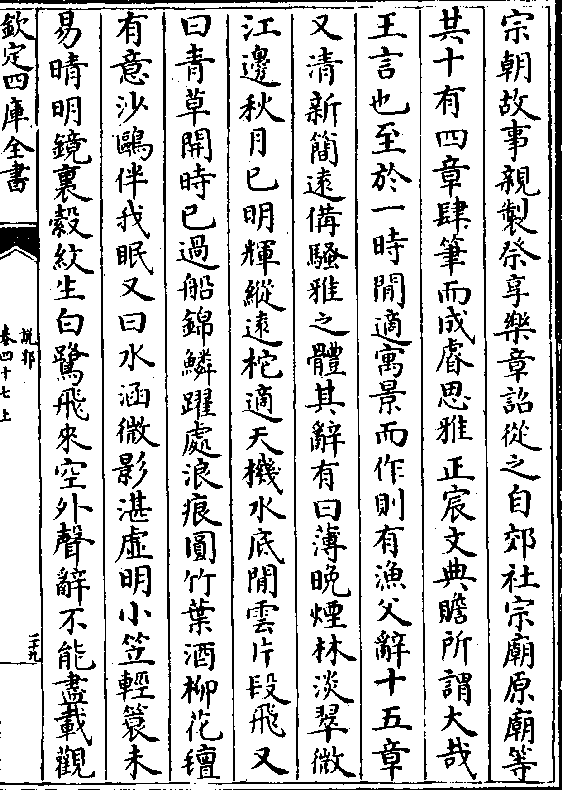 宗朝故事親製祭享樂章詔從之自郊社宗廟原廟等
共十有四章肆筆而成睿思雅正宸文典贍所謂大哉
王言也至於一時閒適寓景而作則有漁父辭十五章
又清新簡遠備騷雅之體其辭有曰薄晚煙林淡翠微
江邊秋月已明輝縱遠柁適天機水底閒雲片段飛又
曰青草開時已過船錦鱗躍處浪痕圓竹葉酒柳花氊
有意沙鷗伴我眠又曰水涵微影湛虛明小笠輕簑未
易晴明鏡裏縠紋生白鷺飛來空外聲辭不能盡載觀
欽定四庫全書
說郛
卷四十七上
二十九